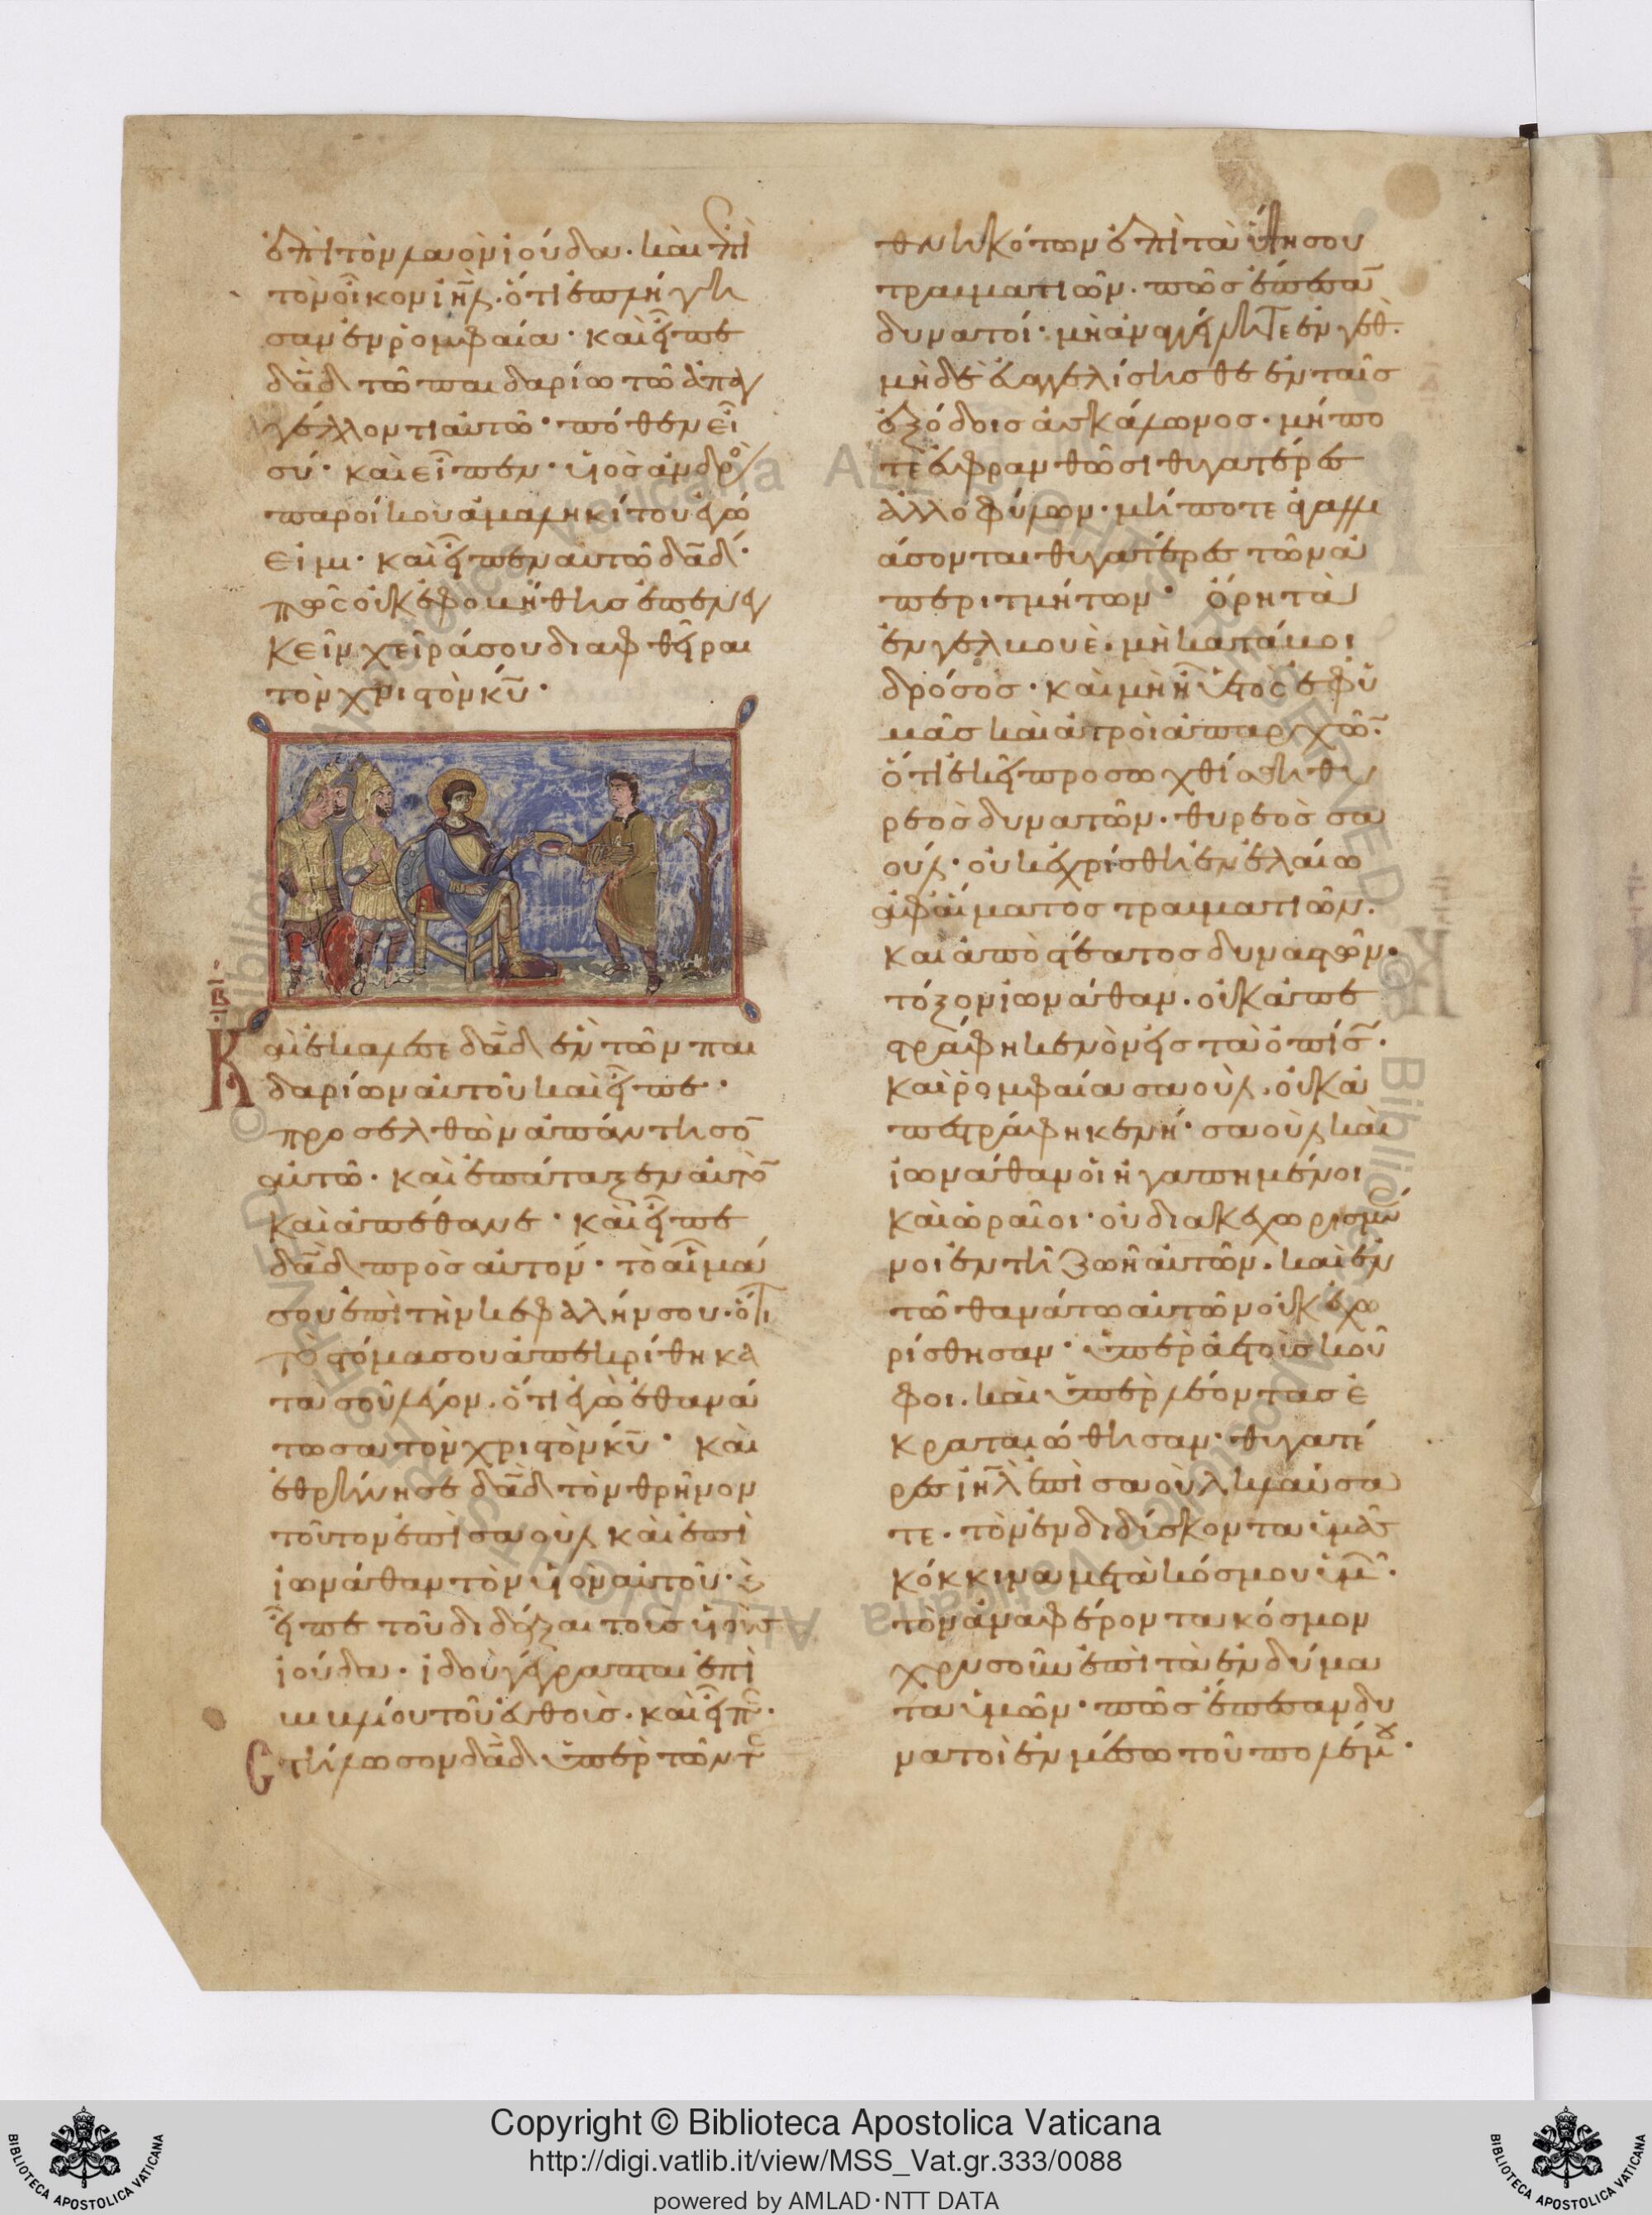 ἐπὶ τὸν λαὸν ἰούδα· καὶ ἐπὶ
τὸν οἶκον ἰη̅λ· ὅτι ἐπλήγη
σαν ἐν ρομφαία· καὶ εἶπε
δα̅δ τῶ παιδαρίω τῶ ἀπαγ
γέλλοντι αὐτῶ· πόθεν εἶ
σύ· καὶ εἶπεν· υἱὸς ἀνδρὸ
παροίκου ἀμαληκίτου ἐγώ
εἰμι· καὶ εἶπεν αὐτῶ δα̅δ·
πῶς οὐκ ἐφοβήθης ἐπενεγ
κεῖν χεῖρά σου διαφθεῖραι
τὸν χριστὸν κ̅υ·
ιβ
Καὶ ἐκάλεσε δα̅δ ἓν τῶν παι
δαρίων αὐτοῦ καὶ εἶπε·
προσελθὼν ἀπάντησο̅
αὐτῶ· καὶ ἐπάταξεν αὐτὸ̅
καὶ ἀπέθανε· καὶ εἶπε
δα̅δ πρὸς αὐτόν· τὸ αἷμά
σου ἐπὶ τὴν κεφαλήν σου· ὅτι
τὸ στόμα σου ἀπεκρίθη κα
τὰ σοῦ λέγον· ὅτι ἐγὼ ἐθανά
τωσα τὸν χριστὸν κ̅υ· καὶ
ἐθρήνησε δα̅δ τὸν θρῆνον
τοῦτον ἐπὶ σαοὺλ καὶ ἐπὶ
ἰωνάθαν τὸν υἱὸν αὐτοῦ· καὶ
εἶπε τοῦ διδάξαι τοὺς υἱοὺς
ἰούδα· ἰδοὺ γέγραπται ἐπὶ
βιβλίου τοῦ εὐθοῦς· καὶ εἶπ·
Στήλωσον δα̅δ ὑπὲρ τῶν τ
θνηκότων ἐπὶ τὰ ὕψη σου
τραυματιῶν· πῶς ἔπεσα̅
δυνατοί· μὴ ἀναγγείλητε ἐν γέθ·
μὴ δὲ εὐαγγελίσησθε ἐν ταῖς
ἐξόδοις ἀσκάλωνος· μήπο
τε εὐφρανθῶσι θυγατέρες
ἀλλοφύλων· μήποτε ἀγαλλι
άσονται θυγατέρες τῶν ἀ
περιτμήτων· ὄρη τὰ
ἐν γελβουὲ· μὴ καταβοι
δρόσος· καὶ μὴ ἦ ὑετὸς ἐφ ὑ
μᾶς καὶ ἀγροὶ ἀπαρχῶ̅·
ὅτι ἐκεῖ προσωχθίσθη θυ
ρεὸς δυνατῶν· θυρεὸς σα
οὺλ· οὐκ ἐχρίσθη ἐν ἐλαίω
ἀφ αἵματος τραυματιῶν·
καὶ ἀπὸ στέατος δυναστῶν·
τόξον ἰωνάθαν· οὐκ ἀπε
στράφη κενὸν εἰς τὰ ὀπίσ̅·
καὶ ρομφαία σαοὺλ· οὐκ ἀ
πεστράφη κενή· σαοὺλ καὶ
ἰωνάθαν οἱ ἠγαπημένοι
καὶ ὡραῖοι· οὐ διακεχωρισμέ
νοι ἐν τῆ ζωῆ αὐτῶν· καὶ ἐν
τῶ θανάτω αὐτῶν οὐκ ἐχω
ρίσθησαν· ὑπὲρ ἀετοὺς κοῦ
φοι· καὶ ὑπὲρ λέοντας ἐ
κραταιώθησαν· θυγατέ
ρες ἰη̅λ ἐπὶ σαοὺλ κλαύσα
τε· τὸν ἐνδιδύσκοντα ὑμᾶς
κόκκινα μετὰ κόσμου ὑμῶ̅·
τὸν ἀναφέροντα κόσμον
χρυσοῦν ἐπὶ τὰ ἐνδύμα
τα ὑμῶν· πῶς ἔπεσαν δυ
νατοὶ ἐν μέσω τοῦ πολέμου·
Copyright © Biblioteca Apostolica Vaticana
http://digi.vatlib.it/view/MSS_Vat.gr.333/0088
powered by AMLAD·NTT DATA